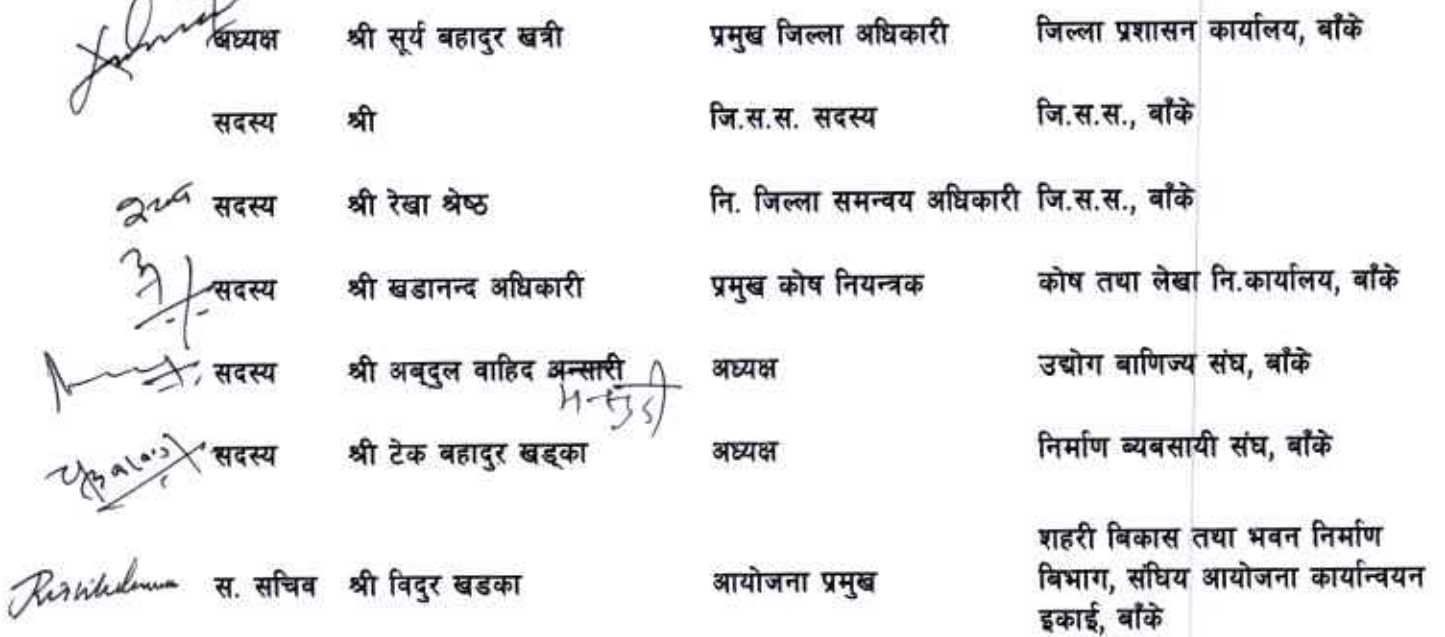 अध्यक्ष श्री सूर्य बहादुर खत्री प्रमुख जिल्ला अधिकारी जिल्ला प्रशासन कार्यालय, बाँके
सदस्य श्री जि.स.स. सदस्य जि.स.स., बाँके
सदस्य श्री रेखा श्रेष्ठ नि. जिल्ला समन्वय अधिकारी जि.स.स., बाँके
सदस्य श्री खडानन्द अधिकारी प्रमुख कोष नियन्त्रक कोष तथा लेखा नि.कार्यालय, बाँके
सदस्य श्री अबदुल वाहिद अन्सारी अध्यक्ष उद्योग बाणिज्य संघ, बाँके
सदस्य श्री टेक बहादुर खड्का अध्यक्ष निर्माण ब्यबसायी संघ, बाँके
स. सचिव श्री विदुर खडका आयोजना प्रमुख शहरी बिकास तथा भवन निर्माण
बिभाग, संघिय आयोजना कार्यान्वयन
इकाई, बाँके